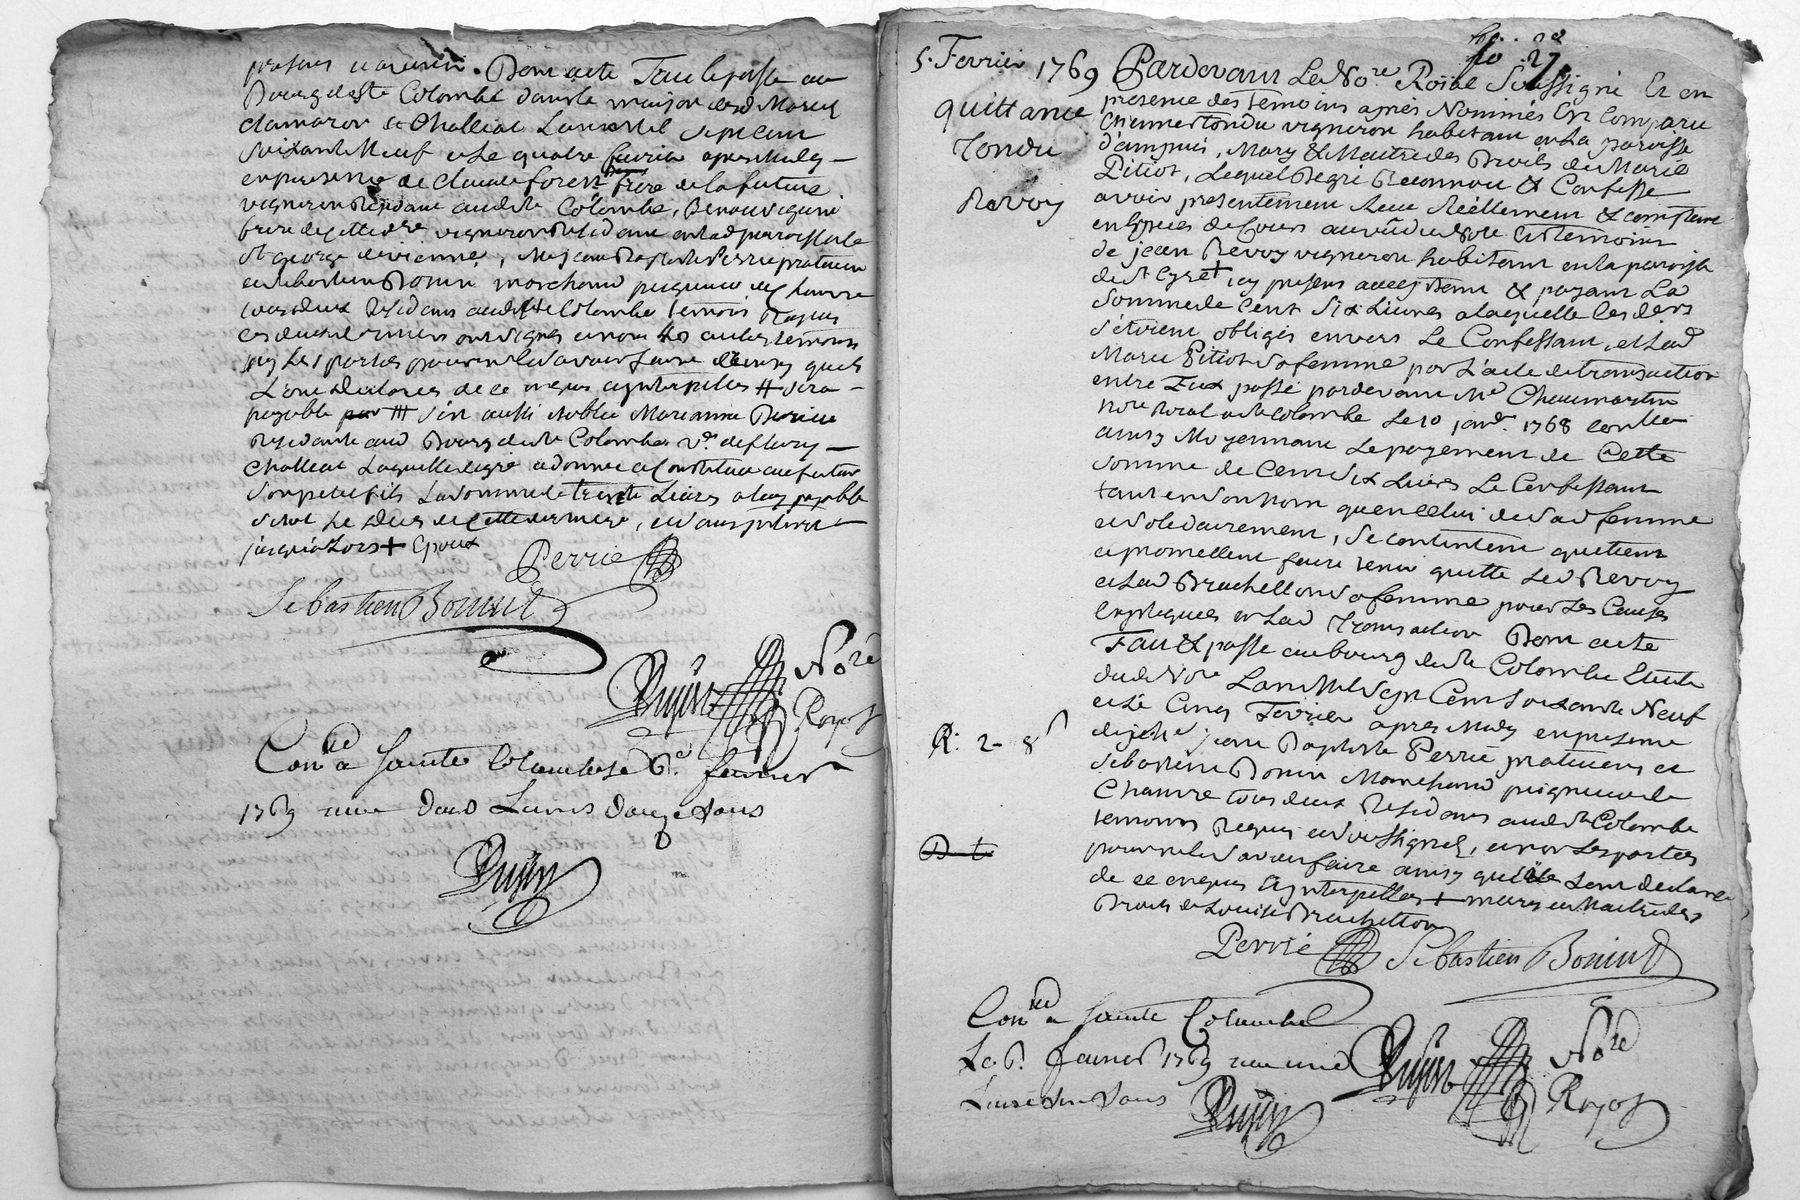 presens et avenir. Dont acte Fait et passé au
Bourg de Ste Colombe dans la maison de
et Challeat L'an mil sept cent
soixante Neuf et Le quatre fevrier apres midy
en presence de Claude forest frere de la future
vigneron Residant aud. Ste Colombe, Benoit
vigneron Residant en lad. parroisse de
St George de vienne, Me jean Baptiste Perrie praticien
et sebastien Bonin marchand peigneur de Chanvre
tous deux Residans aud. Ste Colombe temoins Requis
ces deux derniers ont signés et non les autres temoins
ny les parties pour ne le savoir faire
de ce enquis et interpellés # sera
payable # s'est aussi etablie Marianne
Residante aud. Bourg de Ste Colombe ve. de fleury
Challeat Laquelle de gré a donné et Constitué au futur
son petit fils La somme de trente Livres a luy payable
Le deces de cette derniere, et sans interest
jusqu'a Lors + Epoux
Perrie
Sebastien Bonin
Nore
Royal
Conlé a Sainte Colombe Le 6e. fevrier
1769 Livres douze sous
5. Fevrier 1769
quittance
Tondu
Revoy
fo. 27
Pardevant Le Nore. Royal Soussigné Et en
presence des temoins aprés Nommés Est Comparu
Etienne Tondu vigneron habitant en La paroisse
d'ampuis, Mary & Maitre des Droits de Marie
Pitiot, Lequel de gré Reconnoit & Confesse
avoir presentement Receu Réellement & comptant
en Especes de Cours au vû du Nore. & temoins
de jean Revoy vigneron habitant en la paroisse
de St Cyr + icy present acceptant & payant La
Somme de Cent Six Livres a laquelle
s'étoient obligés envers Le Confessant, et Lad.
Marie Pitiot sa femme par L'acte de transaction
entre Eux passé pardevant Me. Chaumartin
Nore. Royal a Ste Colombe Le 10 janr. 1768
ainsy Moyennant Le payement de Cette
somme de Cent Six Livres Le Confessant
tant en son Nom qu'en celui de Sad. femme
et solidairement, Se contentent quittent
et promettent faire tenir quitte Led. Revoy
et Lad. Brachetton sa femme pour Les Causes
Expliquées en Lad. transaction Dont acte
Fait & passé au bourg de Ste Colombe Etude
dud. Nore. L'an Mil Sept Cent Soixante Neuf
et Le Cinq Fevrier apres Midy en presence
de jean Baptiste Perrie praticien et
Sebastien Bonin Marchand peigneur de
Chanvre tous deux Residans aud. Ste Colombe
temoins Requis et soussignés, et non Les parties
pour ne le savoir faire ainsy qu'elles L'ont declaré
de ce enquis & interpellés + mary et Maitre des
Droits de Louise Brachetton
R: 2 - 8s
Perrie Sebastien Bonin
Conlé a Sainte Colombe
Le 6e. fevrier 1769
Livre six sous
Nore
Royal